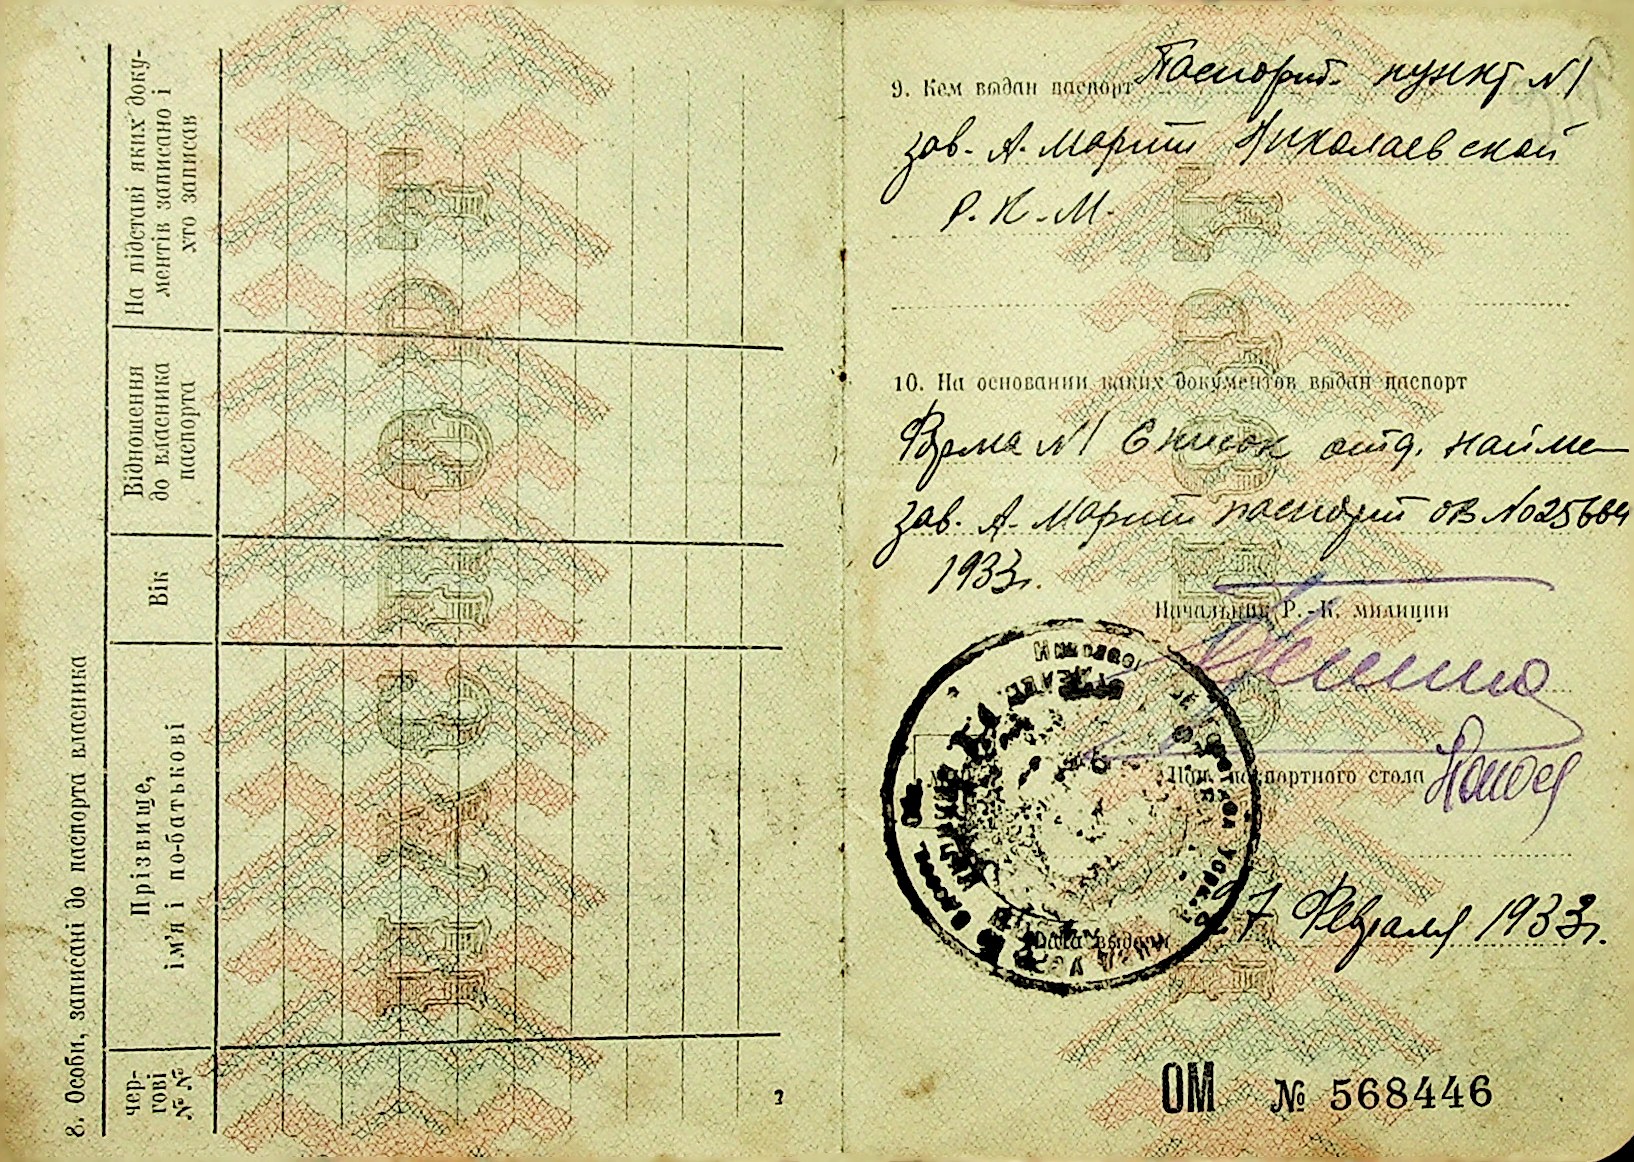 8. Особи, записані до паспорта власника
чер-
гові
№ №
Прізвище,
ім'я і по-батькові
Вік
Відношення
до власника
паспорта
На підставі яких доку-
ментів записано і
хто записав
ПАСПОРТ
3
9. Кем выдан паспорт Паспорт. пункт №1
зав. А. Марти Николаевской
Р. К. М.
10. На основании каких документов выдан паспорт
Форма №1 Список отд. найма
зав. А. Марти паспорт ОВ №025664
1933г.
Начальник Р.-К. милиции
Нач. паспортного стола
Дата выдачи 27 Февраля 1933г.
ПАСПОРТ
ОМ № 568446